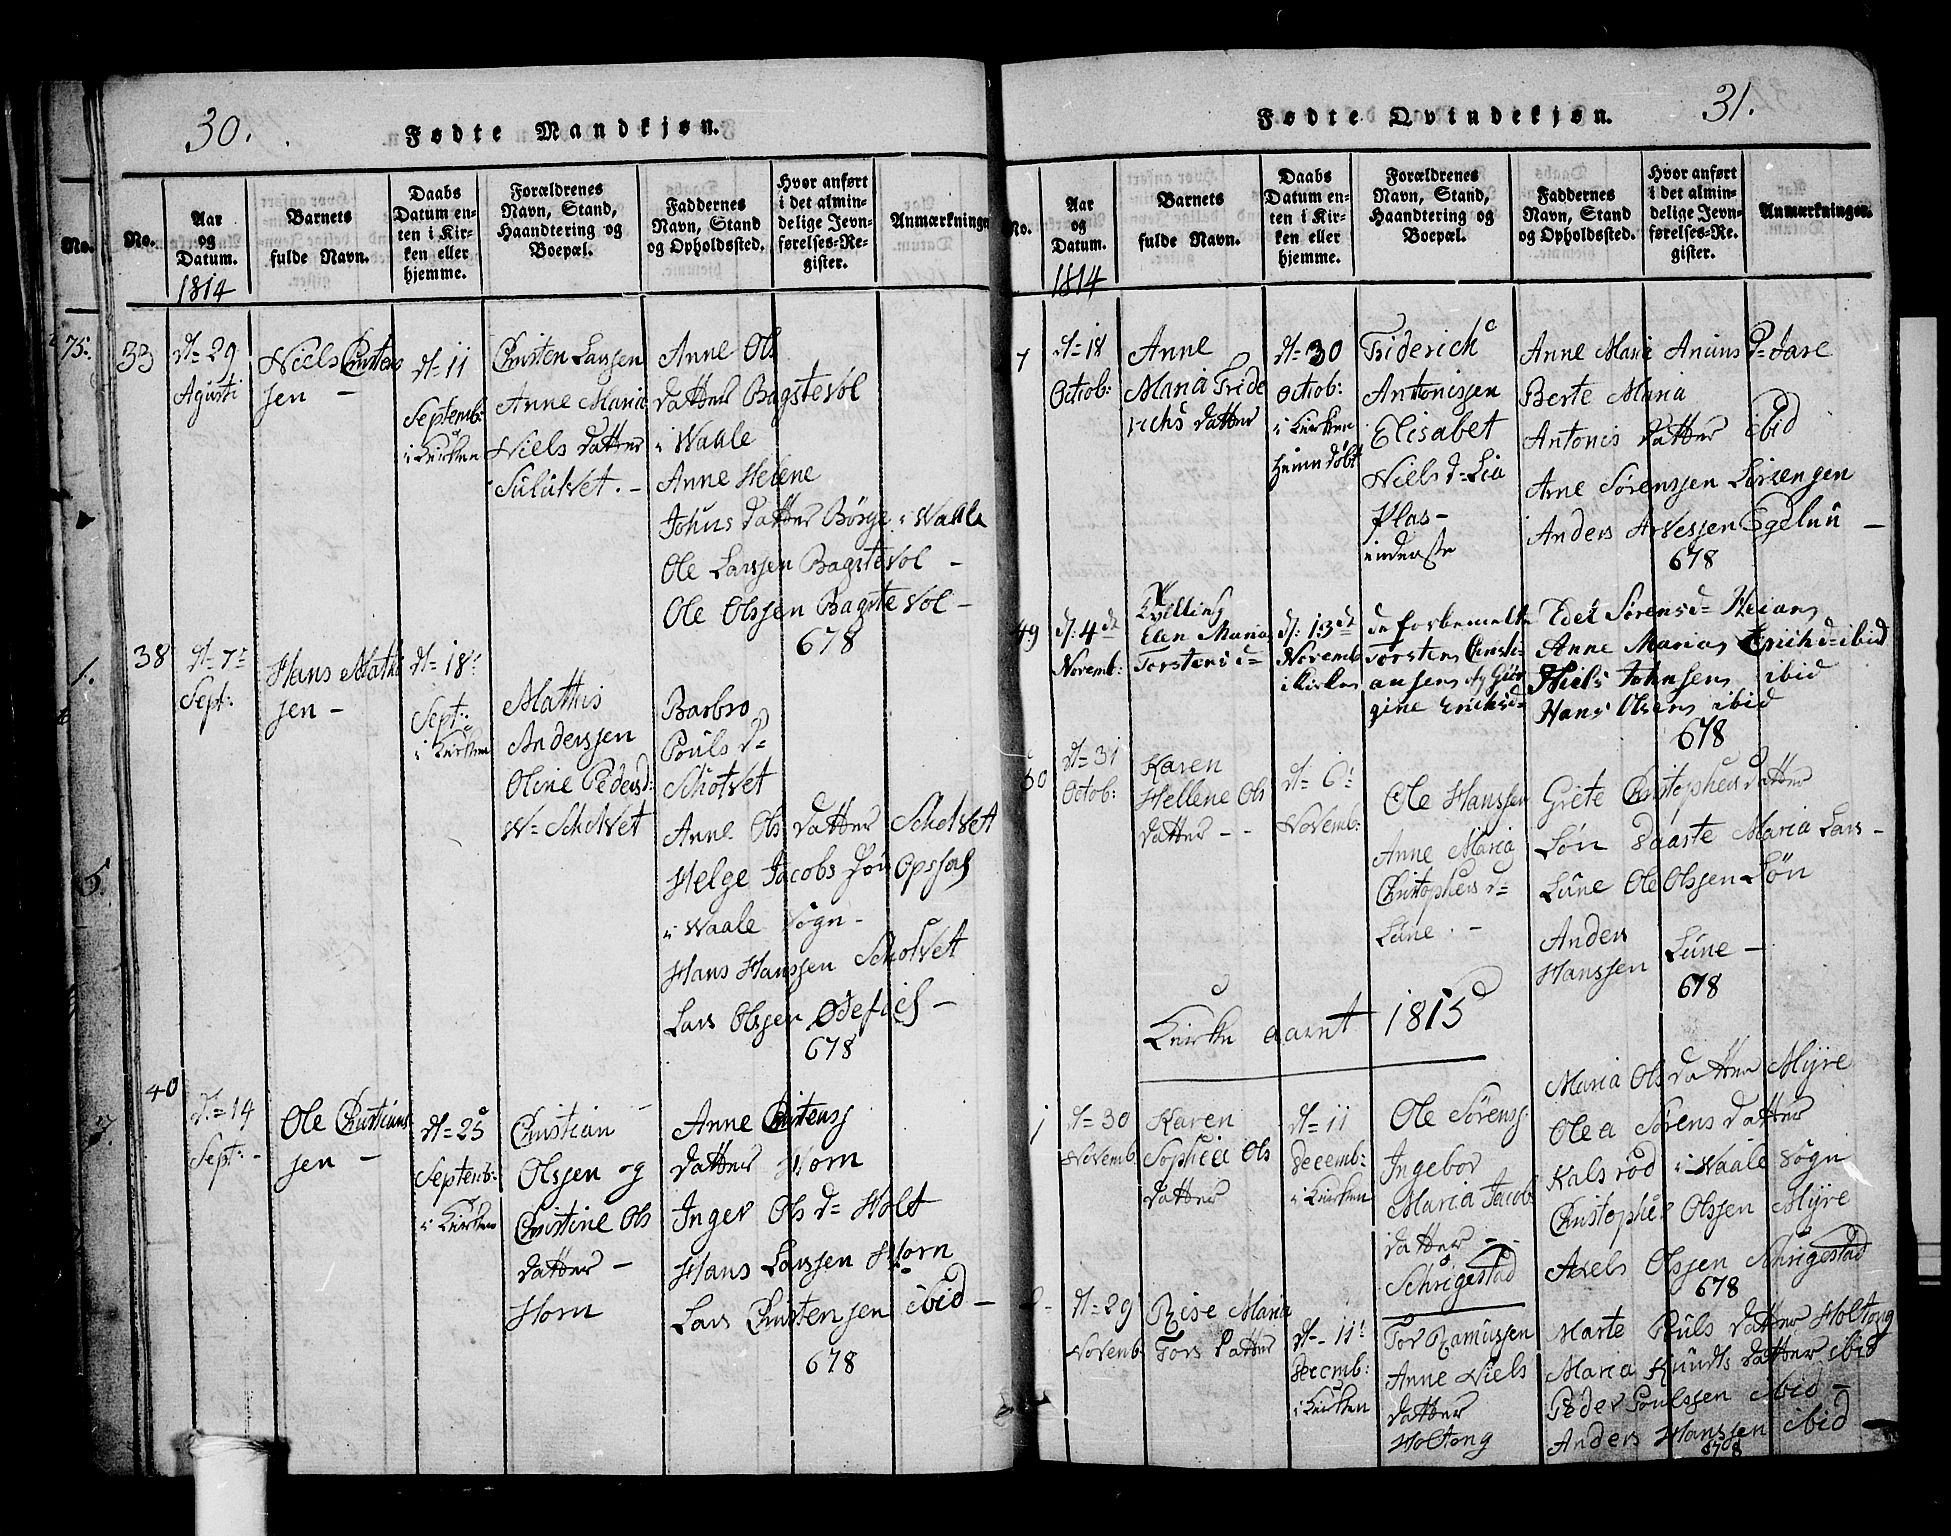 30.
Fødte Mandkjøn.
No.
Aar og Datum.
1814
Barnets fulde Navn.
Daabs Datum enten i Kirken eller hjemme.
Forældrenes Navn, Stand, Haandtering og Boepæl.
Faddernes Navn, Stand og Opholdssted.
Hvor anført i det almindelige Jevnførelses-Register.
Anmærkninger
33
d= 29
Agusti
Niels Christens
sen –
d= 11
Septemb:
i Kirken
Christen Larssen
Anne Maria
Niels datter
Anne Ols
datter Bagstevol
i Waale
Anne Helene
Johns datter Børge i Waale
Ole Larssen Bagstevol –
Ole Olssen Bagstevol –
678
38
d= 7=
Sept:
Hans Mathi
sen –
d= 18=
Sept:
i Kirken
Mathis
Anderssen
Oline Pedersd:
W= Scholvet
Barbro
Pouls d=
Scholvet
Anne Ols datter Scholvet
Helge Jacobs søn Opsahl
i Waale Sogn –
Hans Hanssen Scholvet
Lars Olssen Ødefield –
678
40
d= 14
Sept: –
Ole Christians
sen –
d= 25
Septemb:
i Kirken
Christian
Olssen og
Christine Ols
datter –
Horn
Anne Christens
datter Horn
Inger Ols d= Holt
Hans Larssen Horn
Lars Christensen ibid –
678
31.
Fødte Qvindekjøn.
No.
Aar og Datum.
1814
Barnets fulde Navn.
Daabs Datum enten i Kirken eller hjemme.
Forældrenes Navn, Stand, Haandtering og Boepæl.
Faddernes Navn, Stand og Opholdssted.
Hvor anført i det almindelige Jevnførelses-Register.
Anmærkninger.
7
d= 18
Octob:
Anne
Maria Fride
richs datter
d= 30
Octob:
i Kirken
hjemdøbt
Friderich
Antonissen
Elisabet
Niels d= Lia
Plas –
inderste
Anne Maria
Berte Maria
Antonis datter ibid
Arne Sørenssen
Anders Arvessen Egelun –
678
49
d: 4de
Novemb:
Tvilling
Elen Maria
Torstens d=
d: 13de
Novemb
i Kirken
de forbemelte
Torsten Christi-
ansen og Giør
gine Ericksd=
Edel Sørensd=
Anne Maria Erichsd= ibid
Niels Johnsen ibid
Hans Olsen ibid
678
50
d= 31
Octob:
Karen
Hellene Ols
datter – –
d= 6=
Novemb:
Ole Hanssen
Anne Maria
Christophers d=
Lüne –
Grete Christophersdatter
Løn Daarte Maria Lars –
Lüne Ole Olssen Løn
Anders
Hanssen Lüne –
678
Kirke aaret 1815
1
d= 30
Novemb
Karen
Sophia Ols
datter
d= 11
Decemb:
i Kirken
Ole Sørens
Ingebor
Maria Jacobs
datter –
Schrigestad
Maria Ols datter Myre
Olea Sørens datter
Kals rød i Waale Sogn
Christopher Olssen Myre
Axels Olssen Schrigestad
678
2
d= 29
Novemb:
Rise Maria
Tors datter
d= 11=
Decemb:
i Kirken
Tor Ramussen
Anne Niels
datter
Holtong
Marte Pouls datter Holtong
Maria Knuds datter ibid
Peder Poulssen ibid –
Anders Hanssen ibid
678